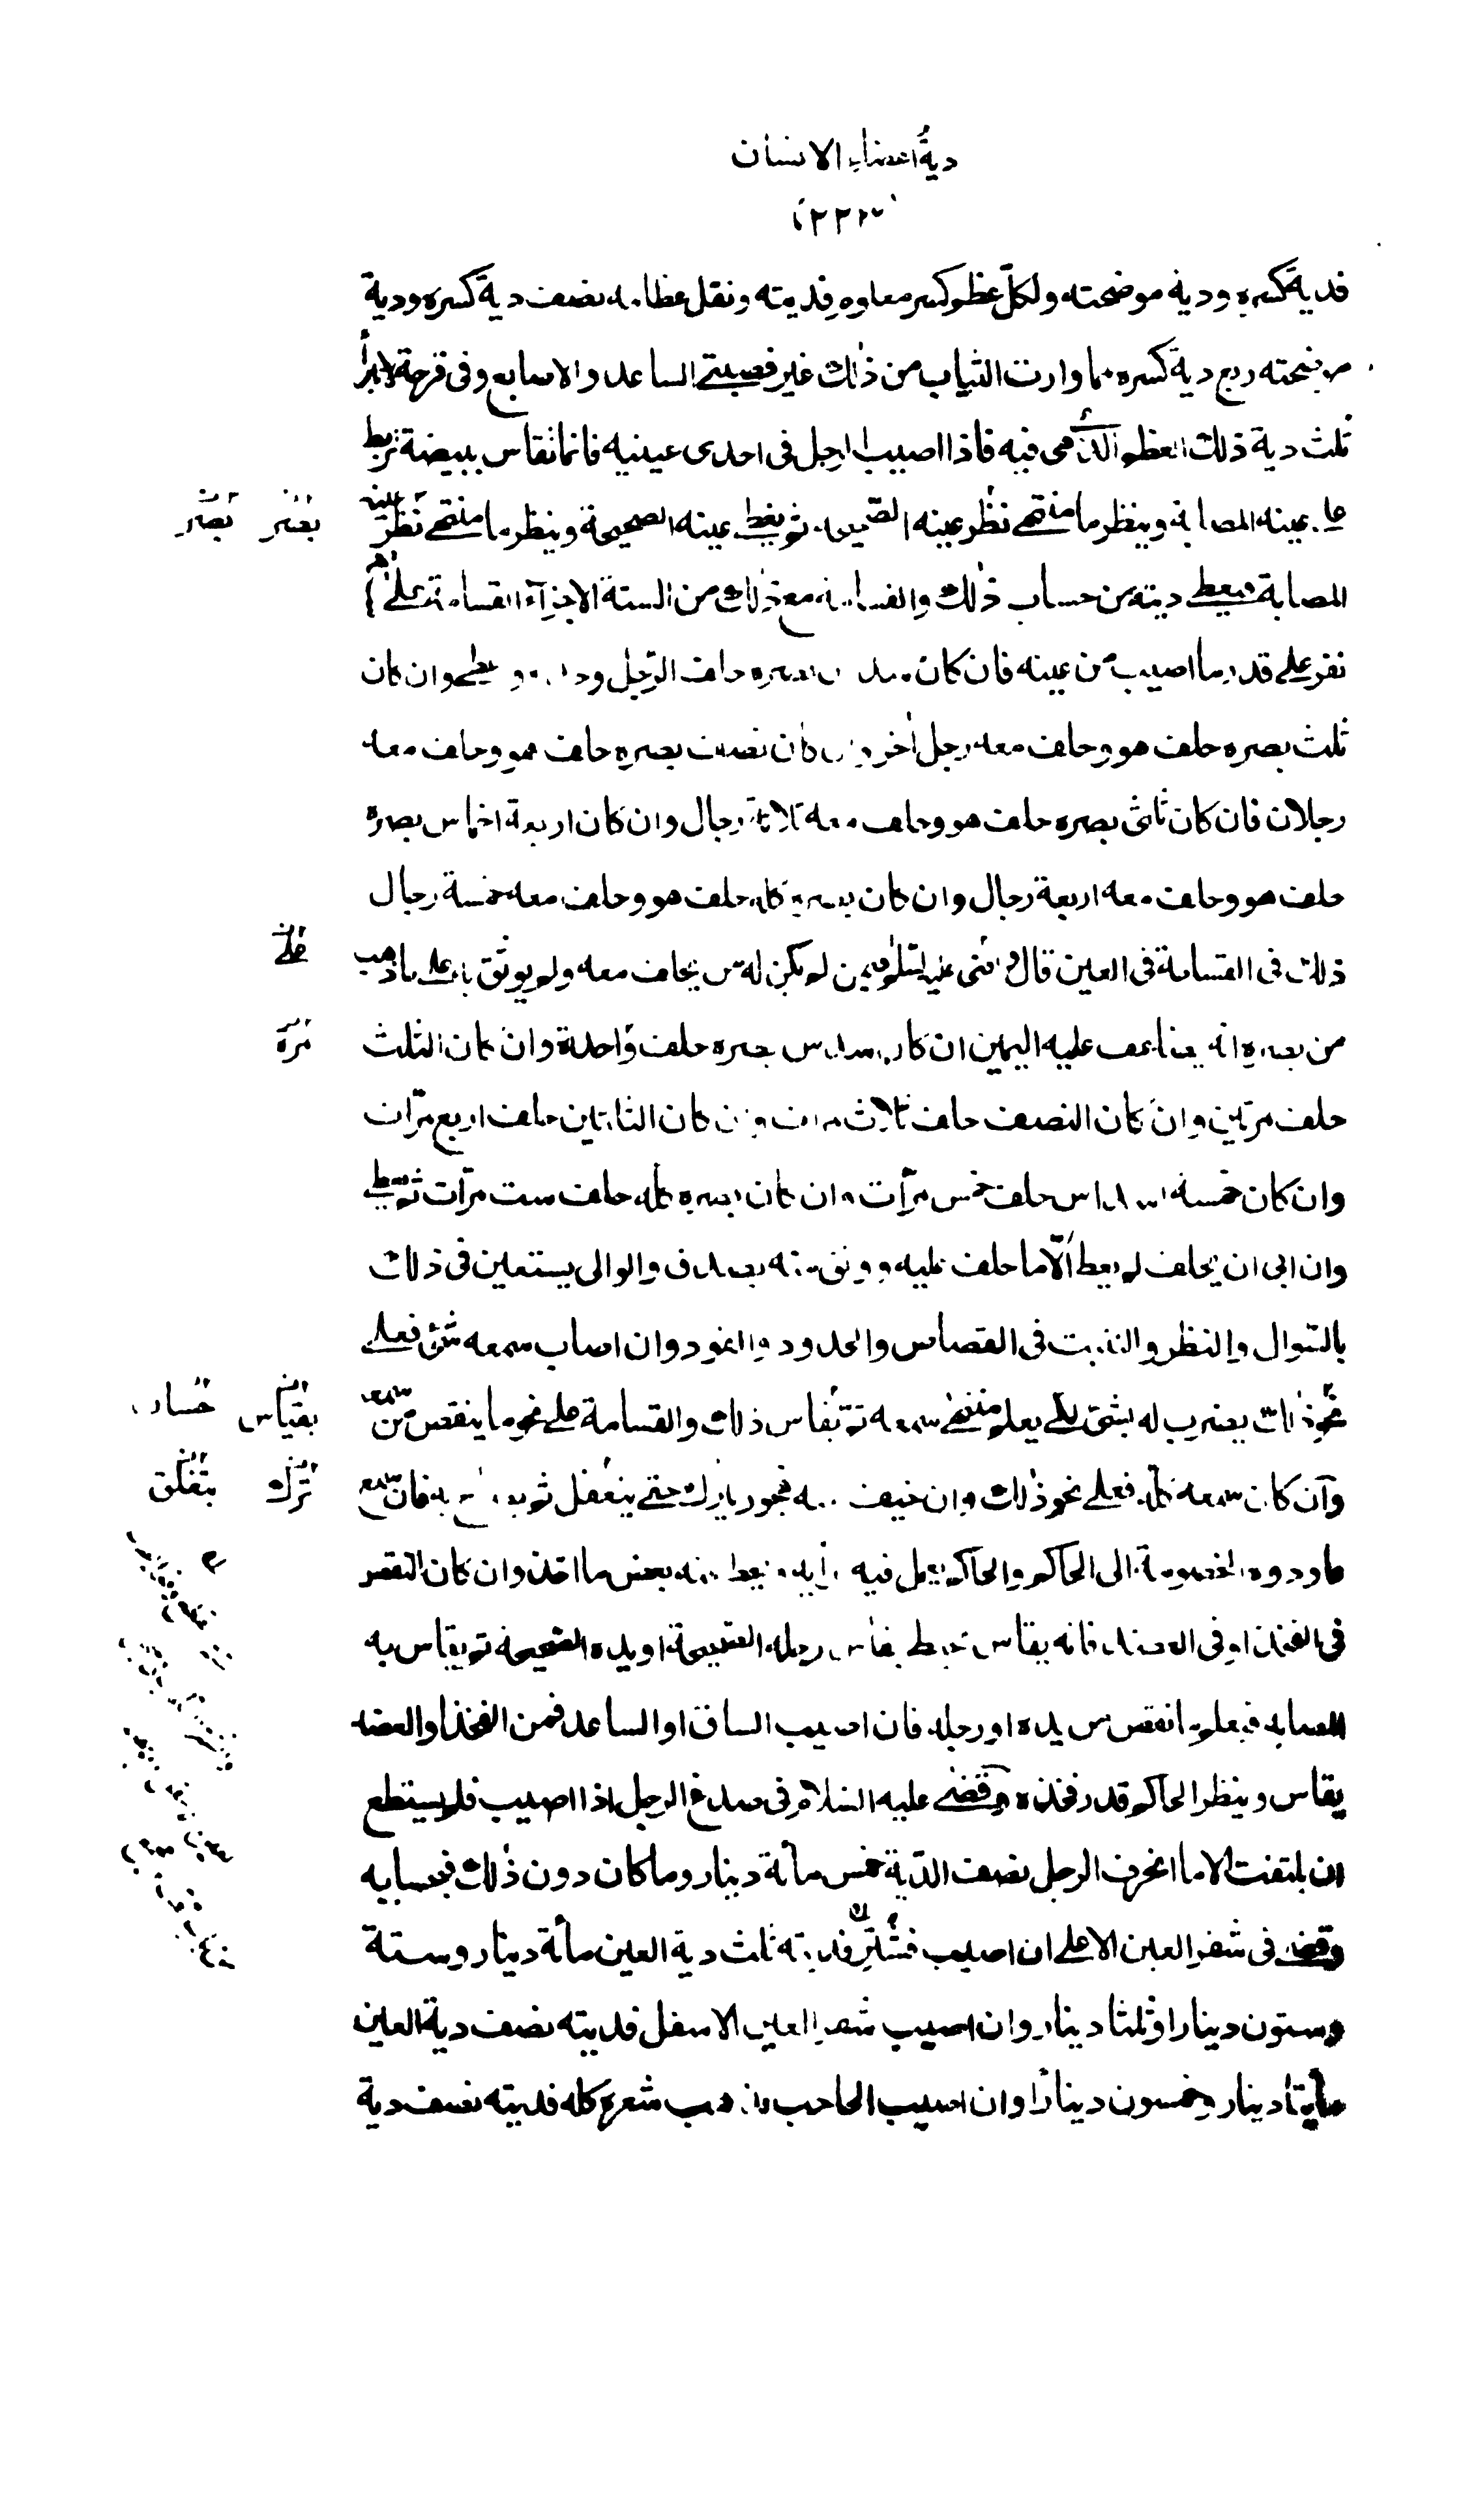 دية اعضاء الانسان
فدية كسره ودية موضحته ولكل عظم كسر معلوم فديته ونقل عظامه نصف دية كسره ودية
موضحته ربع دية كسره مما وارت الثياب من ذلك غير قصبتي الساعد والاصابع وفى قرحة لا تبرأ
ثلث دية ذلك العظم الذى هى فيه فاذا اصيب الرجل فى احدى عينيه فانما تقاس ببيضة تربط
على عينه المصابة وينظر ما منتهى نظر عينه الصحيحة ثم يغطى عينه الصحيحة وينظر ما منتهى نظر عينه
المصابة فيعطى ديته من حساب ذلك والقسامة مع ذلك من الستة الاجزاء القسامة على
نفر على قدر ما اصيب من عينه فان كان سدس بصره حلف الرجل وحده واعطى وان كان
ثلث بصره حلف هو وحلف معه رجل اخر وان كان نصف بصره حلف هو وحلف معه
رجلان فان كان ثلثى بصره حلف هو وحلف معه ثلاثة رجال وان كان اربعة اخماس بصره
حلف هو وحلف معه اربعة رجال وان كان بصره كله حلف هو وحلف معه خمسة رجال
ذلك فى القسامة فى العين قال وافتى عليه السلام فيمن لم يكن له من يحلف معه ولم يوثق به على ما ذهب
من بصره انه يضاعف عليه اليمين ان كان سدس بصره حلف واحدة وان كان الثلث
حلف مرتين وان كان النصف حلف ثلاث مرات وان كان الثلثين حلف اربع مرات
وان كان خمسة اسداس حلف خمس مرات وان كان بصره كله حلف ست مرات ثم يعطى
وان ابى ان يحلف لم يعط الا ما حلف عليه ووثق منه بصدق والوالى يستعين فى ذلك
بالسؤال والنظر والتثبت فى القصاص والحدود والقود وان اصاب سمعه شئ فعلى
نحو ذلك يضرب له بشئ لكى يعلم منتهى سمعه ثم يقاس ذلك والقسامة على نحو ما ينقص من سمعه
وان كان سمعه كله فعلى نحو ذلك وان خيف منه فجور يترك حتى يتغفل ثم يصاح به فان سمع
عاودوه الخصومة الى الحاكم والحاكم يعمل فيه برأيه ويحط عنه بعض ما اخذ وان كان النقص
فى الفخذ او فى العضد فانه يقاس بخيط يقاس رجله الصحيحة او يده الصحيحة ثم يقاس به
المصابة فيعلم ما نقص من يده او رجله فان اصيب الساق او الساعد فمن الفخذ او العضد
يقاس وينظر الحاكم قدر فخذه وقضى عليه السلام فى صدغ الرجل اذا اصيب فلم يستطع
ان يلتفت الا ما انحرف الرجل نصف الدية خمس مأة دينار وما كان دون ذلك فبحسابه
وقضى فى شفر العين الاعلى ان اصيب فشتر فديته ثلث دية العين مأة دينار وستة
وستون دينارا وثلثا دينار وان اصيب شفر العين الاسفل فديته نصف دية العين
مأيتا دينار وخمسون دينارا وان اصيب الحاجب فذهب شعره كله فديته نصف دية